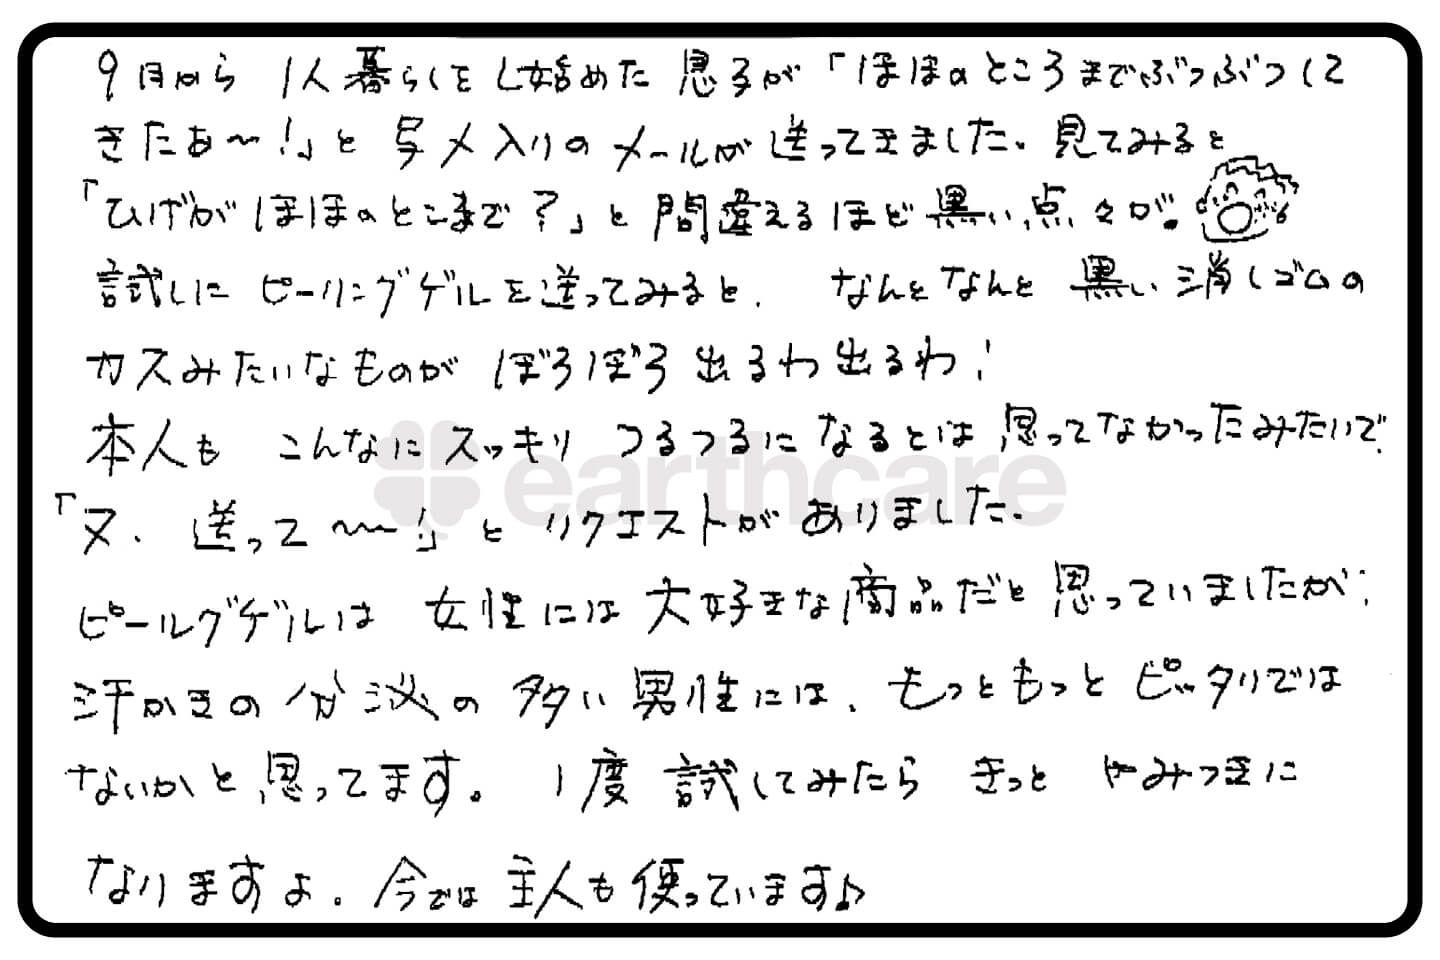 9月から 1人暮らしをし始めた 息子が「ほほのところまでぶつぶつして
きたぁ〜!」と 写メ入りのメールが 送ってきました。見てみると
「ひげが ほほのところまで?」と 間違えるほど 黒い点々が。
試しに ピーリングゲルを送ってみると、 なんとなんと 黒い消しゴムの
カスみたいなものが ぼろぼろ 出るわ出るわ!
本人も こんなに スッキリ つるつるに なるとは 思ってなかったみたいで
「又、送って〜〜!」と リクエストが ありました。
ピールグゲルは 女性には 大好きな 商品だと 思っていましたが、
汗かきの 分泌の 多い 男性には、もっともっと ピッタリでは
ないかと 思ってます。 1度 試してみたら きっと やみつきに
なりますよ。今では 主人も 使っています♪
earthcare